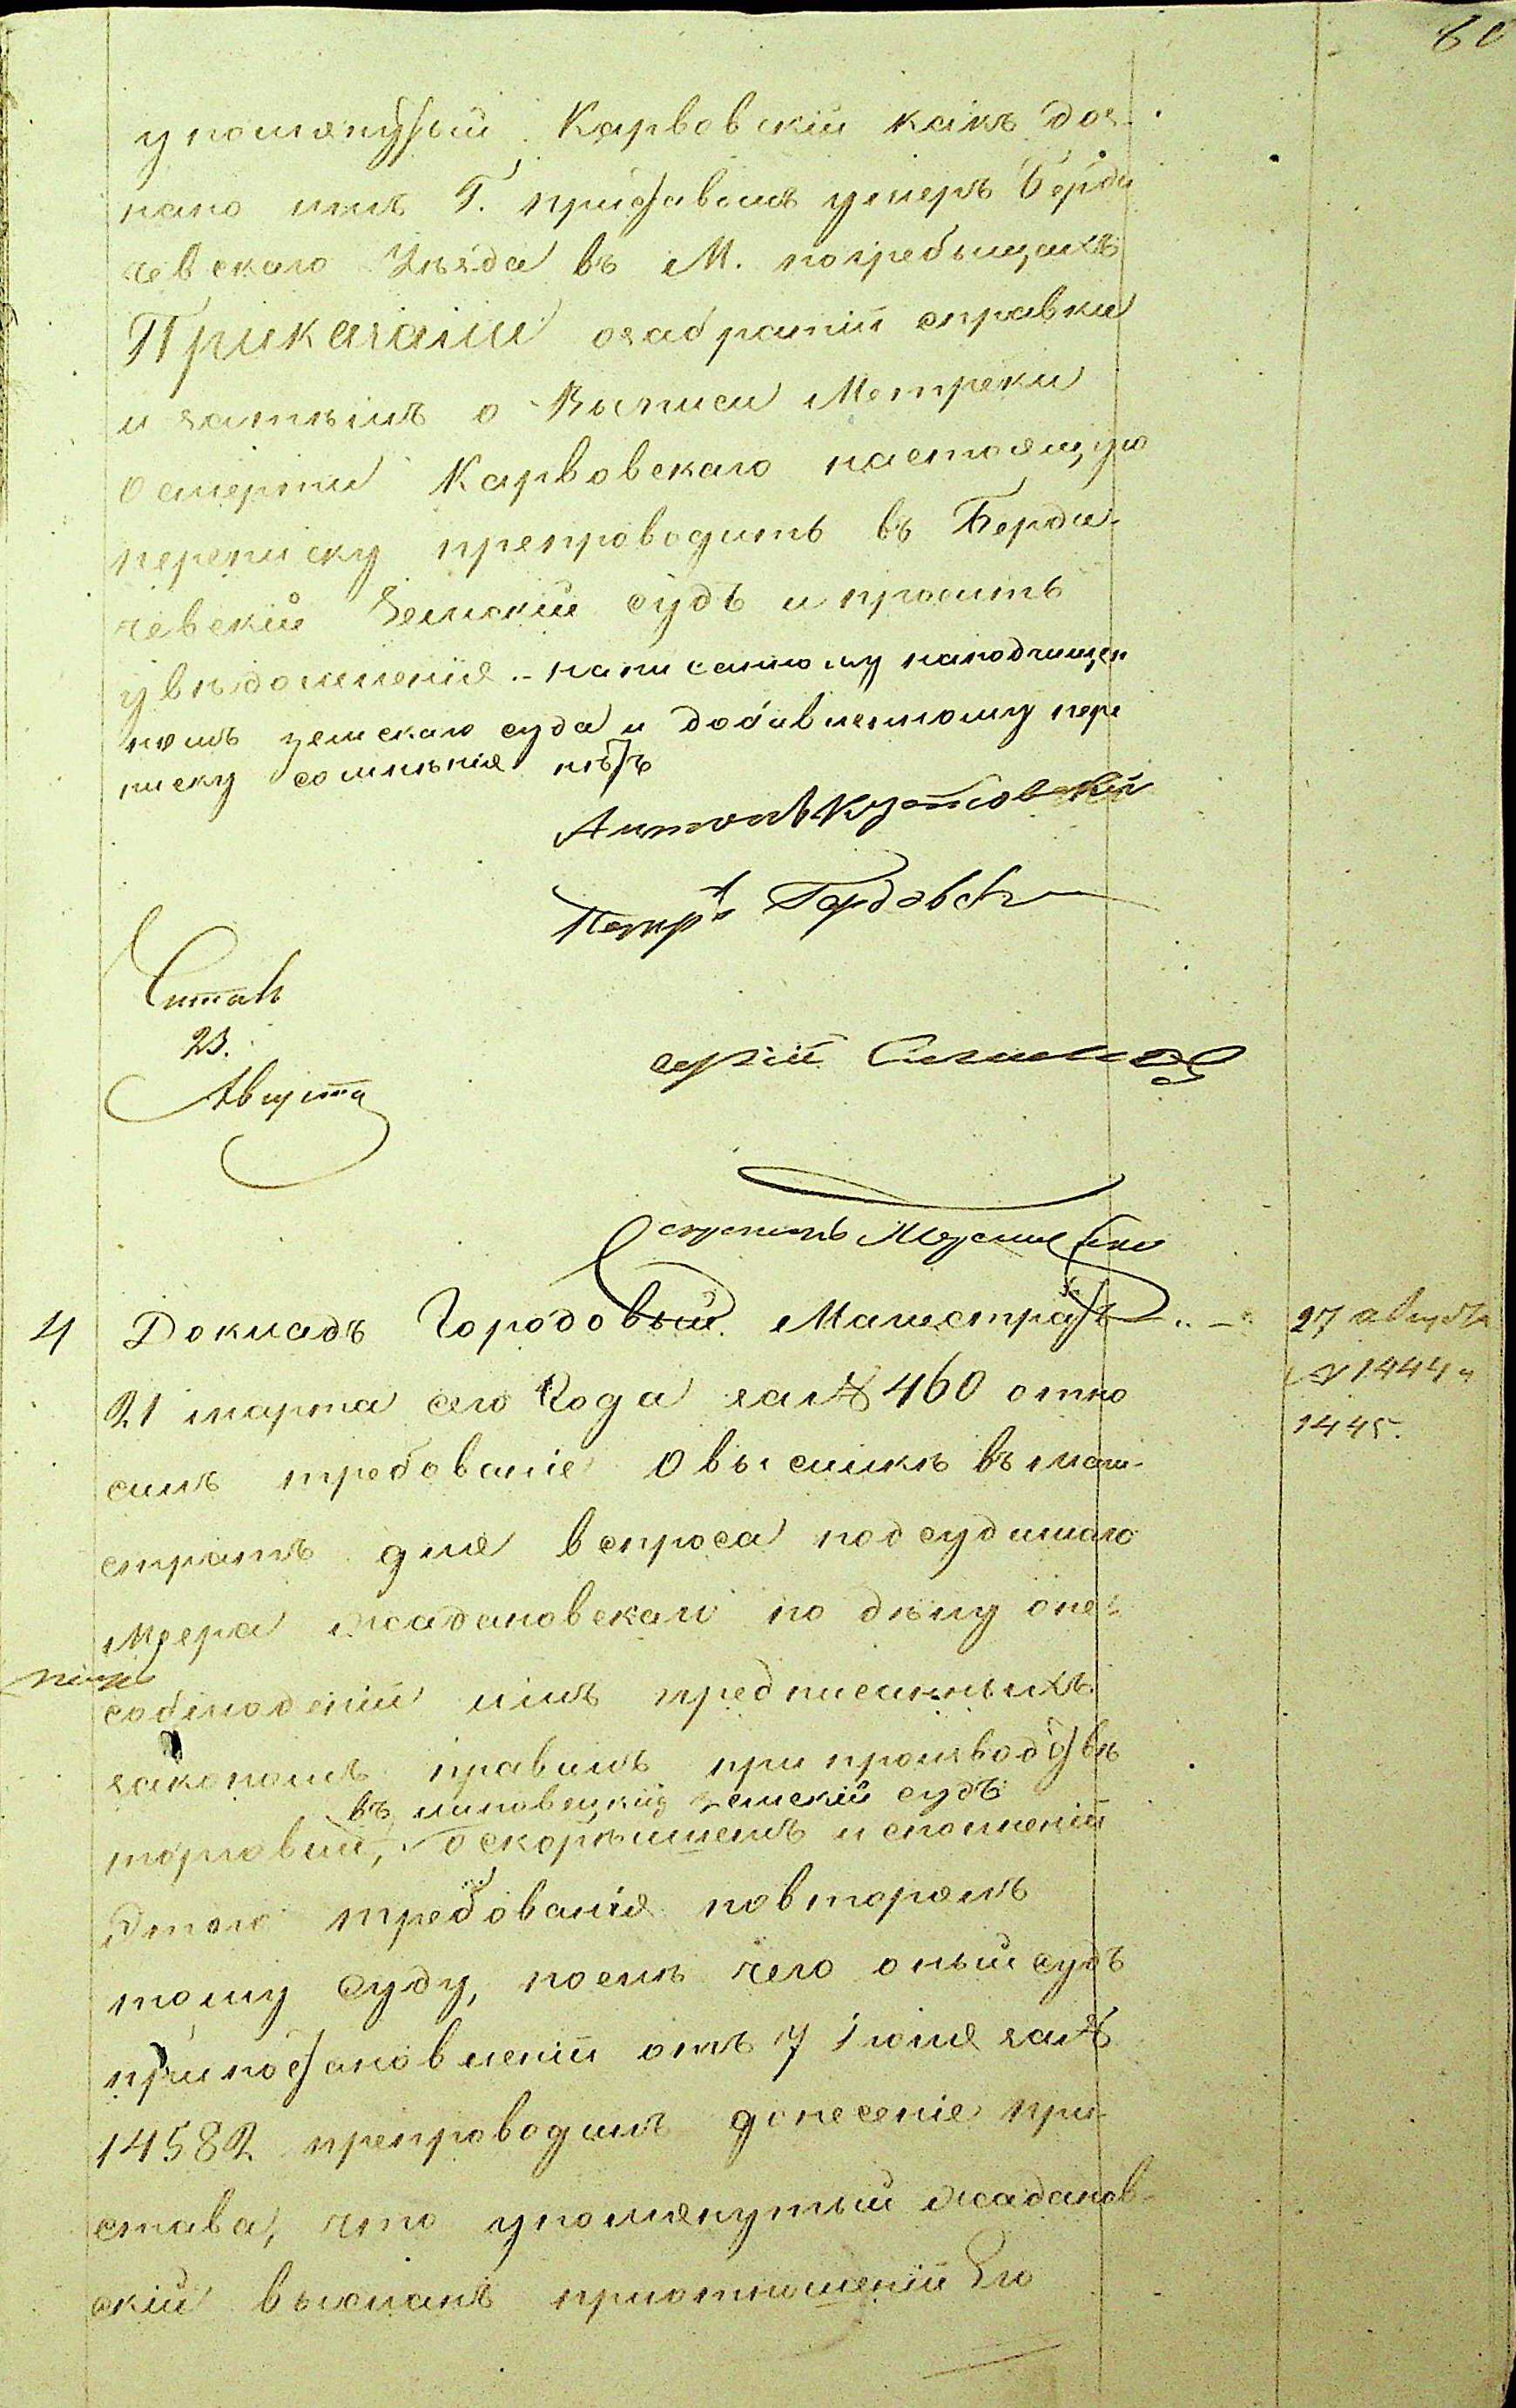 60
упомянутый Карвовскій какъ доз-
нано имъ Г. приставомъ умеръ Берди
чевскаго Уѣзда въ М. погребыщахъ
Приказали озабраніи справки
и затѣмъ о Выписи Метреки
О смерти Карвовскаго настоящую
переписку препроводить въ Берди-
чевскій Земскій судъ и просить
увѣдомленія.- написанному наподчищен
номъ земскаго суда и добавленному пере
писку сомнѣнія нѣтъ
Петръ
Читалъ
23.
Августа
4 Докладъ Городовый Магистратъ
27 августа
№ 1444 и
1445.
21 марта сего года за № 460 отно
силъ требованіе о высилкѣ въ маги-
стратъ для вспроса подсудимаго
Меера Жадановскаго по дѣлу о не-
соблюденіи имъ предписанныхъ
закономъ правилъ при производствѣ
въ липовецкій земскій судъ
торговли, о скорѣйшемъ исполненіи
Этого требованія повторялъ
тому суду, послѣ чего оный судъ
при постановленіи отъ 7 іюля за №
14582 препроводилъ донесеніе при-
става, что упомянутый Жаданов-
скій высланъ приотношеніи Его